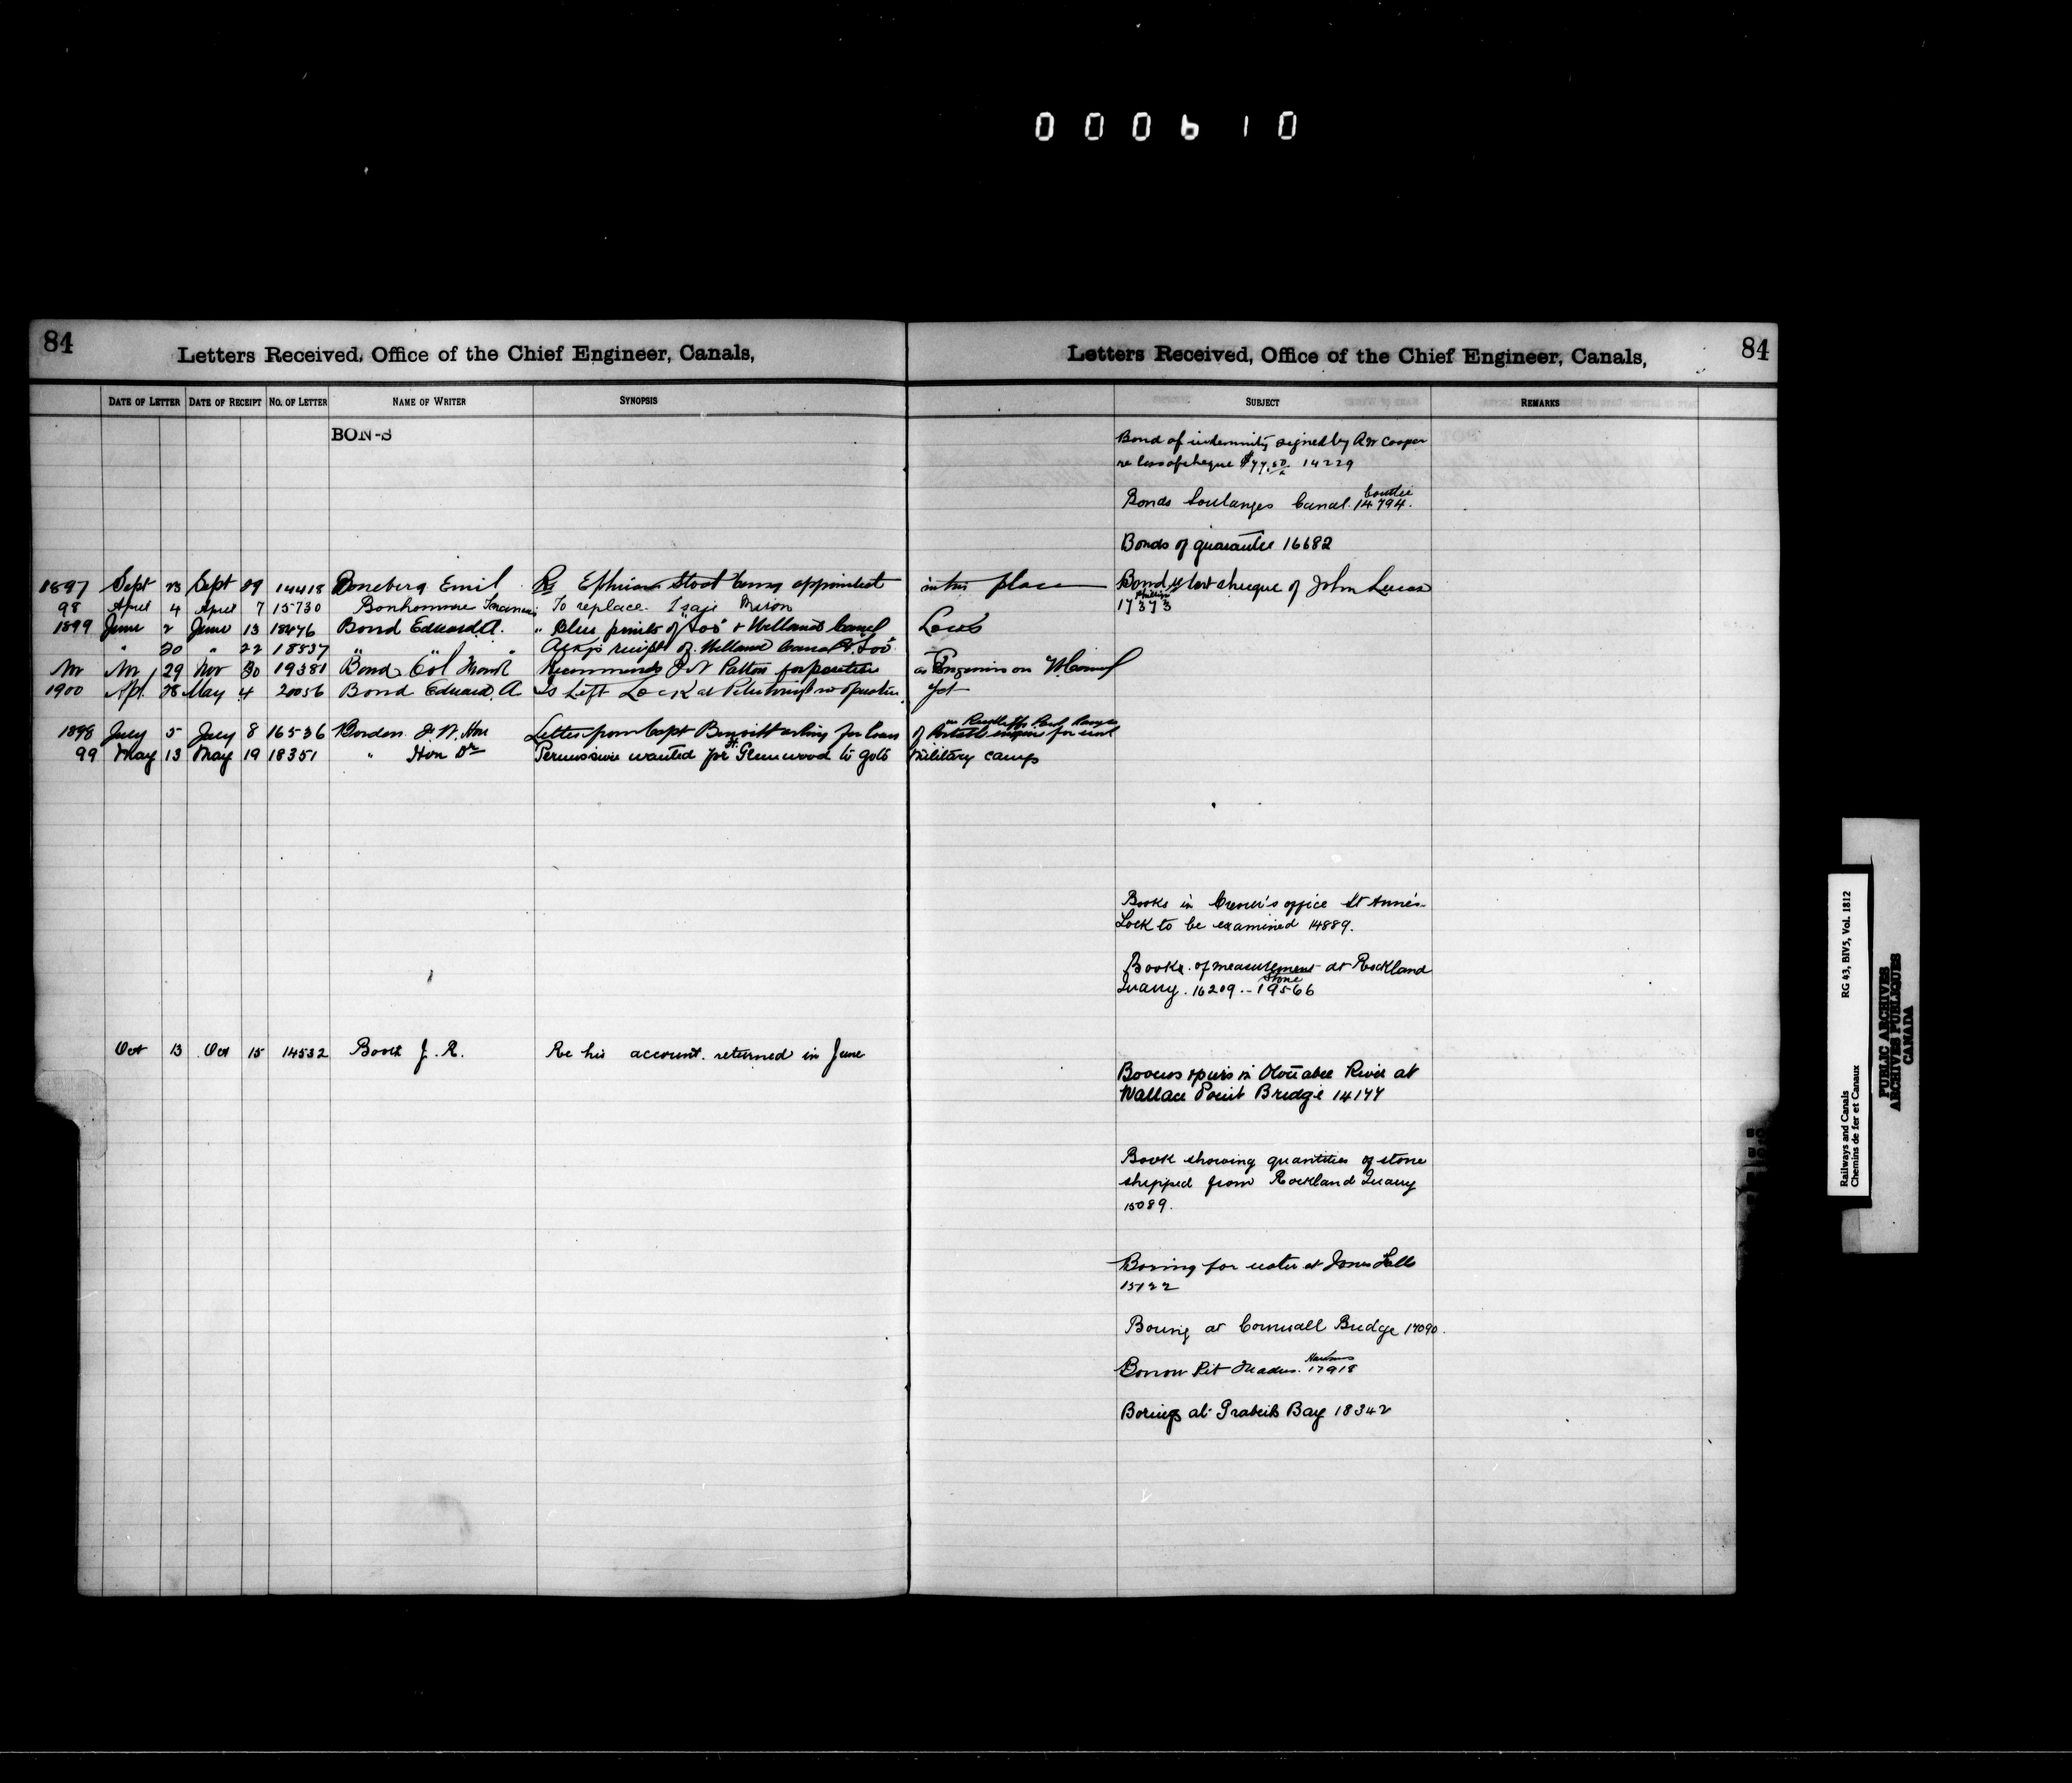 000610
84
Letters Received, Office of the Chief Engineer, Canals,
DATE OF LETTER DATE OF RECEIPT No. OF LETTER NAME OF WRITER SYNOPSIS
BON-S
1897 Sept 23 Sept 29 14418 Boneberg Emil Re Ephriam Stoat being appointed in his place
98 April 4 April 7 15730 Bonhomme To replace
1899 June 2 June 13 18476 Bond Edward A. " Blue prints of "Soo" & Welland Canal Locks
" 20 " 22 18537 " " Ackgs receipt of Welland Canal & "Soo"
Nov 29 Nov 30 19381 Bond Col Frank Recommends Patton for position as Engineer on
1900 Apl. 28 May 4 20056 Bond Edward A Is Lift Lock at in operation yet
1898 July 5 July 8 16536 Borden F. W. Hon Letter from Capt asking for loan of
99 May 13 May 19 18351 " Hon Dr Permission wanted for Glenwood to go to Military camp
Oct 13 Oct 15 14532 Booth J. R. Re his account returned in June
84
Letters Received, Office of the Chief Engineer, Canals,
SUBJECT REMARKS
Bond of indemnity signed by Cooper
re loss of cheque 14229
Bonds Soulanges Canal. 14794.
Bonds of guarantee 16682
Bond re lost cheque of John Lucas
17373
Books in office St Anne's
Lock to be examined 14889.
Books of measurement at Rockland
Stone
Quarry. 16209 - 19566
Booms & piers in Otonabee River at
Wallace Point Bridge 14177
Book showing quantities of stone
shipped from Rockland Quarry
15089.
Boring for water at Jones Falls
15122
Boring at Cornwall Bridge 17090.
Borrow Pit 17918
Borings at Bay 18342
Railways and Canals RG 43, BIV5, Vol. 1812
Chemins de fer et Canaux
PUBLIC ARCHIVES
ARCHIVES PUBLIQUES
CANADA